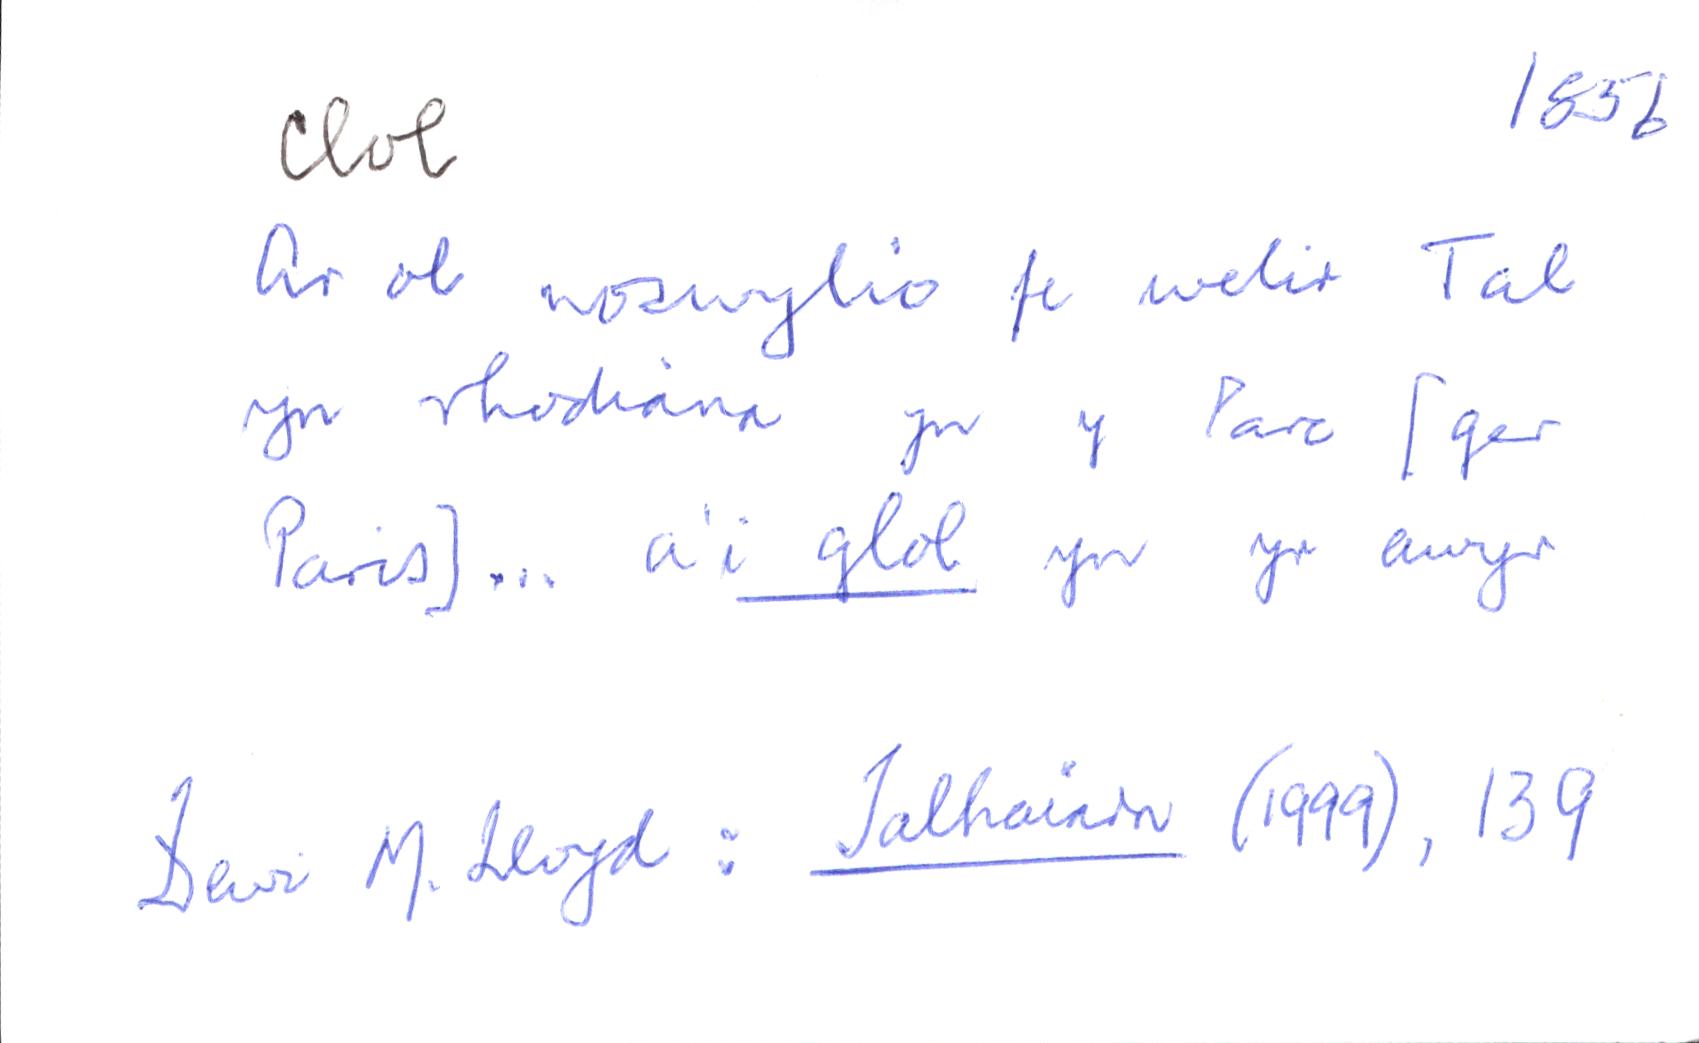 1856
Clol
Ar ol noswylio fe welir Tal
yn rhodiana yn y Parc [ger
Paris]... a'i glol yn yr awyr
Dewi M. Lloyd : Talhaiarn (1999), 139